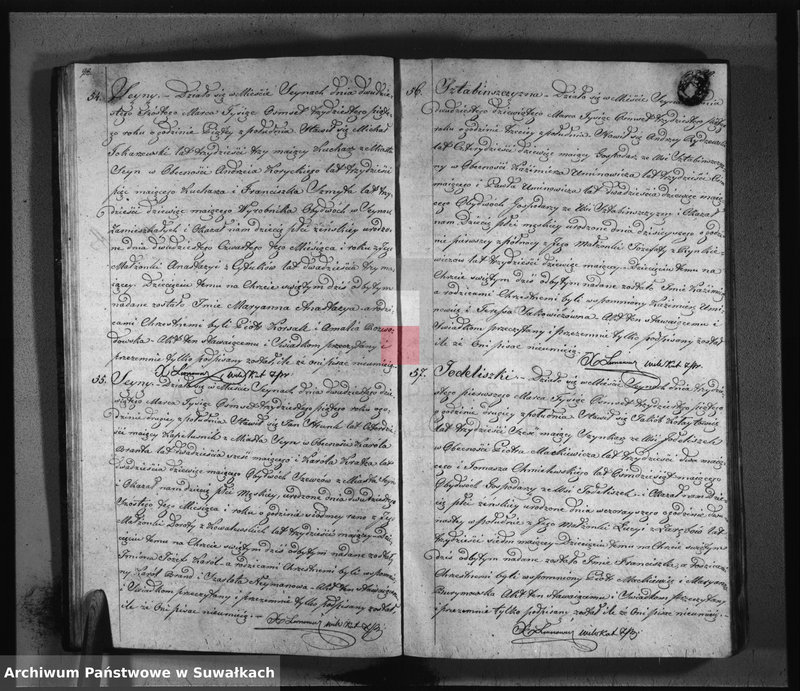 54.
Seyny. Działo się w Mieście Seynach dnia dwudzie-
stego szóstego Marca Tysiąc Osmset trzydziestego piąte-
go roku o godzinie piątey z południa. Stawił się Michał
Tokarzewski lat trzydzieści trzy maiący Kucharz z Miasta
Seyn w Obecności Andrzeia Koryckiego lat trzydzieści
pięć maiącego Kucharza i Franciszka lat trzy-
dzieści dziewięć maiącego Wyrobnika Obydwóch w Seynach
Zamieszkałych i Okazał nam dziecię płci żeńskiey urodzo-
ne dnia dwudziestego Czwartego tego Miesiąca i roku z Jego
Małżonki Anastazyi z lat dwadzieścia trzy ma-
iącey. Dziecięciu temu na Chrzcie świętym dziś odbytym
nadane zostało Imie Maryanna Anastazya a rodzi-
cami Chrzestnemi byli Piotr Kowale i Amalia
Akt ten stawiaiącemu i Świadkom przeczytany i
przezemnie tylko podpisany został ile że oni pisać nieumieią.
55.
Seyny. Działo się w Mieście Seynach dnia dwudziestego dzie-
wiątego Marca Tysiąc Osmset trzydziestego piątego roku o go-
dzinie drugiey z południa. Stawił się Jan lat Czterdzie-
ści maiący Kapelusznik z Miasta Seyn w Obecności Karola
Branta lat dwadzieścia sześć maiącego i Karola lat
dwadzieścia dziewięć maiącego Obydwóch Szewców z Miasta Seyn
i Okazał nam dziecię płci Męskiey urodzone dnia dwudziestego
szóstego tego Miesiąca i roku o godzinie siódmey rano z Jego
Małżonki Doroty z lat trzydzieści maiącey. Dzie-
cięciu temu na Chrzcie świętym dziś odbytym nadane zostały
Imiona Józef Karol a rodzicami Chrzestnemi byli wspomnio-
ny Karól Brand i Szarlota Neymanowa. Akt ten stawaiącemu
i Świadkom przeczytany i przezemnie tylko podpisany został
ile że oni pisać nieumieią.
56.
Sztabinszczyzna. Działo się w Mieście Seynach dnia
dwudziestego dziewiątego Marca Tysiąc Osmset trzydziestego piątego
roku o godzinie trzeciey z południa. Stawił się Andrzey
lat Czterdzieści dziewięć maiący Gospodarz ze Wsi Sztabinszczyzny
w Obecności Kazimierza Uminowicza lat trzydzieści
maiącego i Pawła Uminowicza lat dwadzieścia dziewięć maią-
cego Obydwóch Gospodarzy ze Wsi Sztabinszczyzny i Okazał
nam Dziecię płci męskiey urodzone dnia dzisieyszego o godzi-
nie pierwszey z północy z Jego Małżonki Józefaty z
lat trzydzieści dziewięć maiącey. Dziecięciu temu na
Chrzcie świętym dziś odbytym nadane zostało Imie Kazimierz
a rodzicami Chrzestnemi byli wspomniony Kazimierz Umi-
nowicz i Akt ten stawaiącemu i
Świadkom przeczytany i przezemnie tylko podpisany został
ile że oni pisać nieumieią.
57.
Jodeliszki. Działo się w Mieście Seynach dnia trzydzie-
stego pierwszego Marca Tysiąc Osmset trzydziestego piątego
roku o godzinie drugiey z południa. Stawił się Jakób
lat trzydzieści sześć maiący Szynkarz ze Wsi Jodeliszek
w Obecności Piotra Mackiewicza lat trzydzieści dwa maią-
cego i Tomasza Chmielewskiego lat Osmdziesiąt maiącego
Obydwóch Gospodarzy ze Wsi Jodeliszek. i Okazał nam dzie-
cię płci żeńskiey urodzone dnia wczorayszego o godzinie dwu-
nastey w południe z Jego Małżonki Łucyi z lat
trzydzieści siedm maiącey. Dziecięciu temu na Chrzcie świętym
dziś odbytym nadane zostało Imie Franciszka, a rodzicami
Chrzestnemi byli wspomniony Piotr Mackiewicz i Maryanna
Akt ten stawaiącemu i Świadkom przeczytany
i przezemnie tylko podpisany został ile że oni pisać nieumieią.
Archiwum Państwowe w Suwałkach